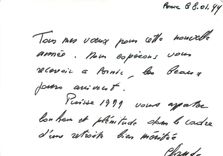 le 8.01.99
Tous mes vœux pour cette nouvelle
année. Nous espérons vous
recevoir à Arnic, les beaux
jours arrivent.
Puisse 1999 vous apporter
bonheur et plénitude dans le cadre
d'une retraite bien méritée
Claude